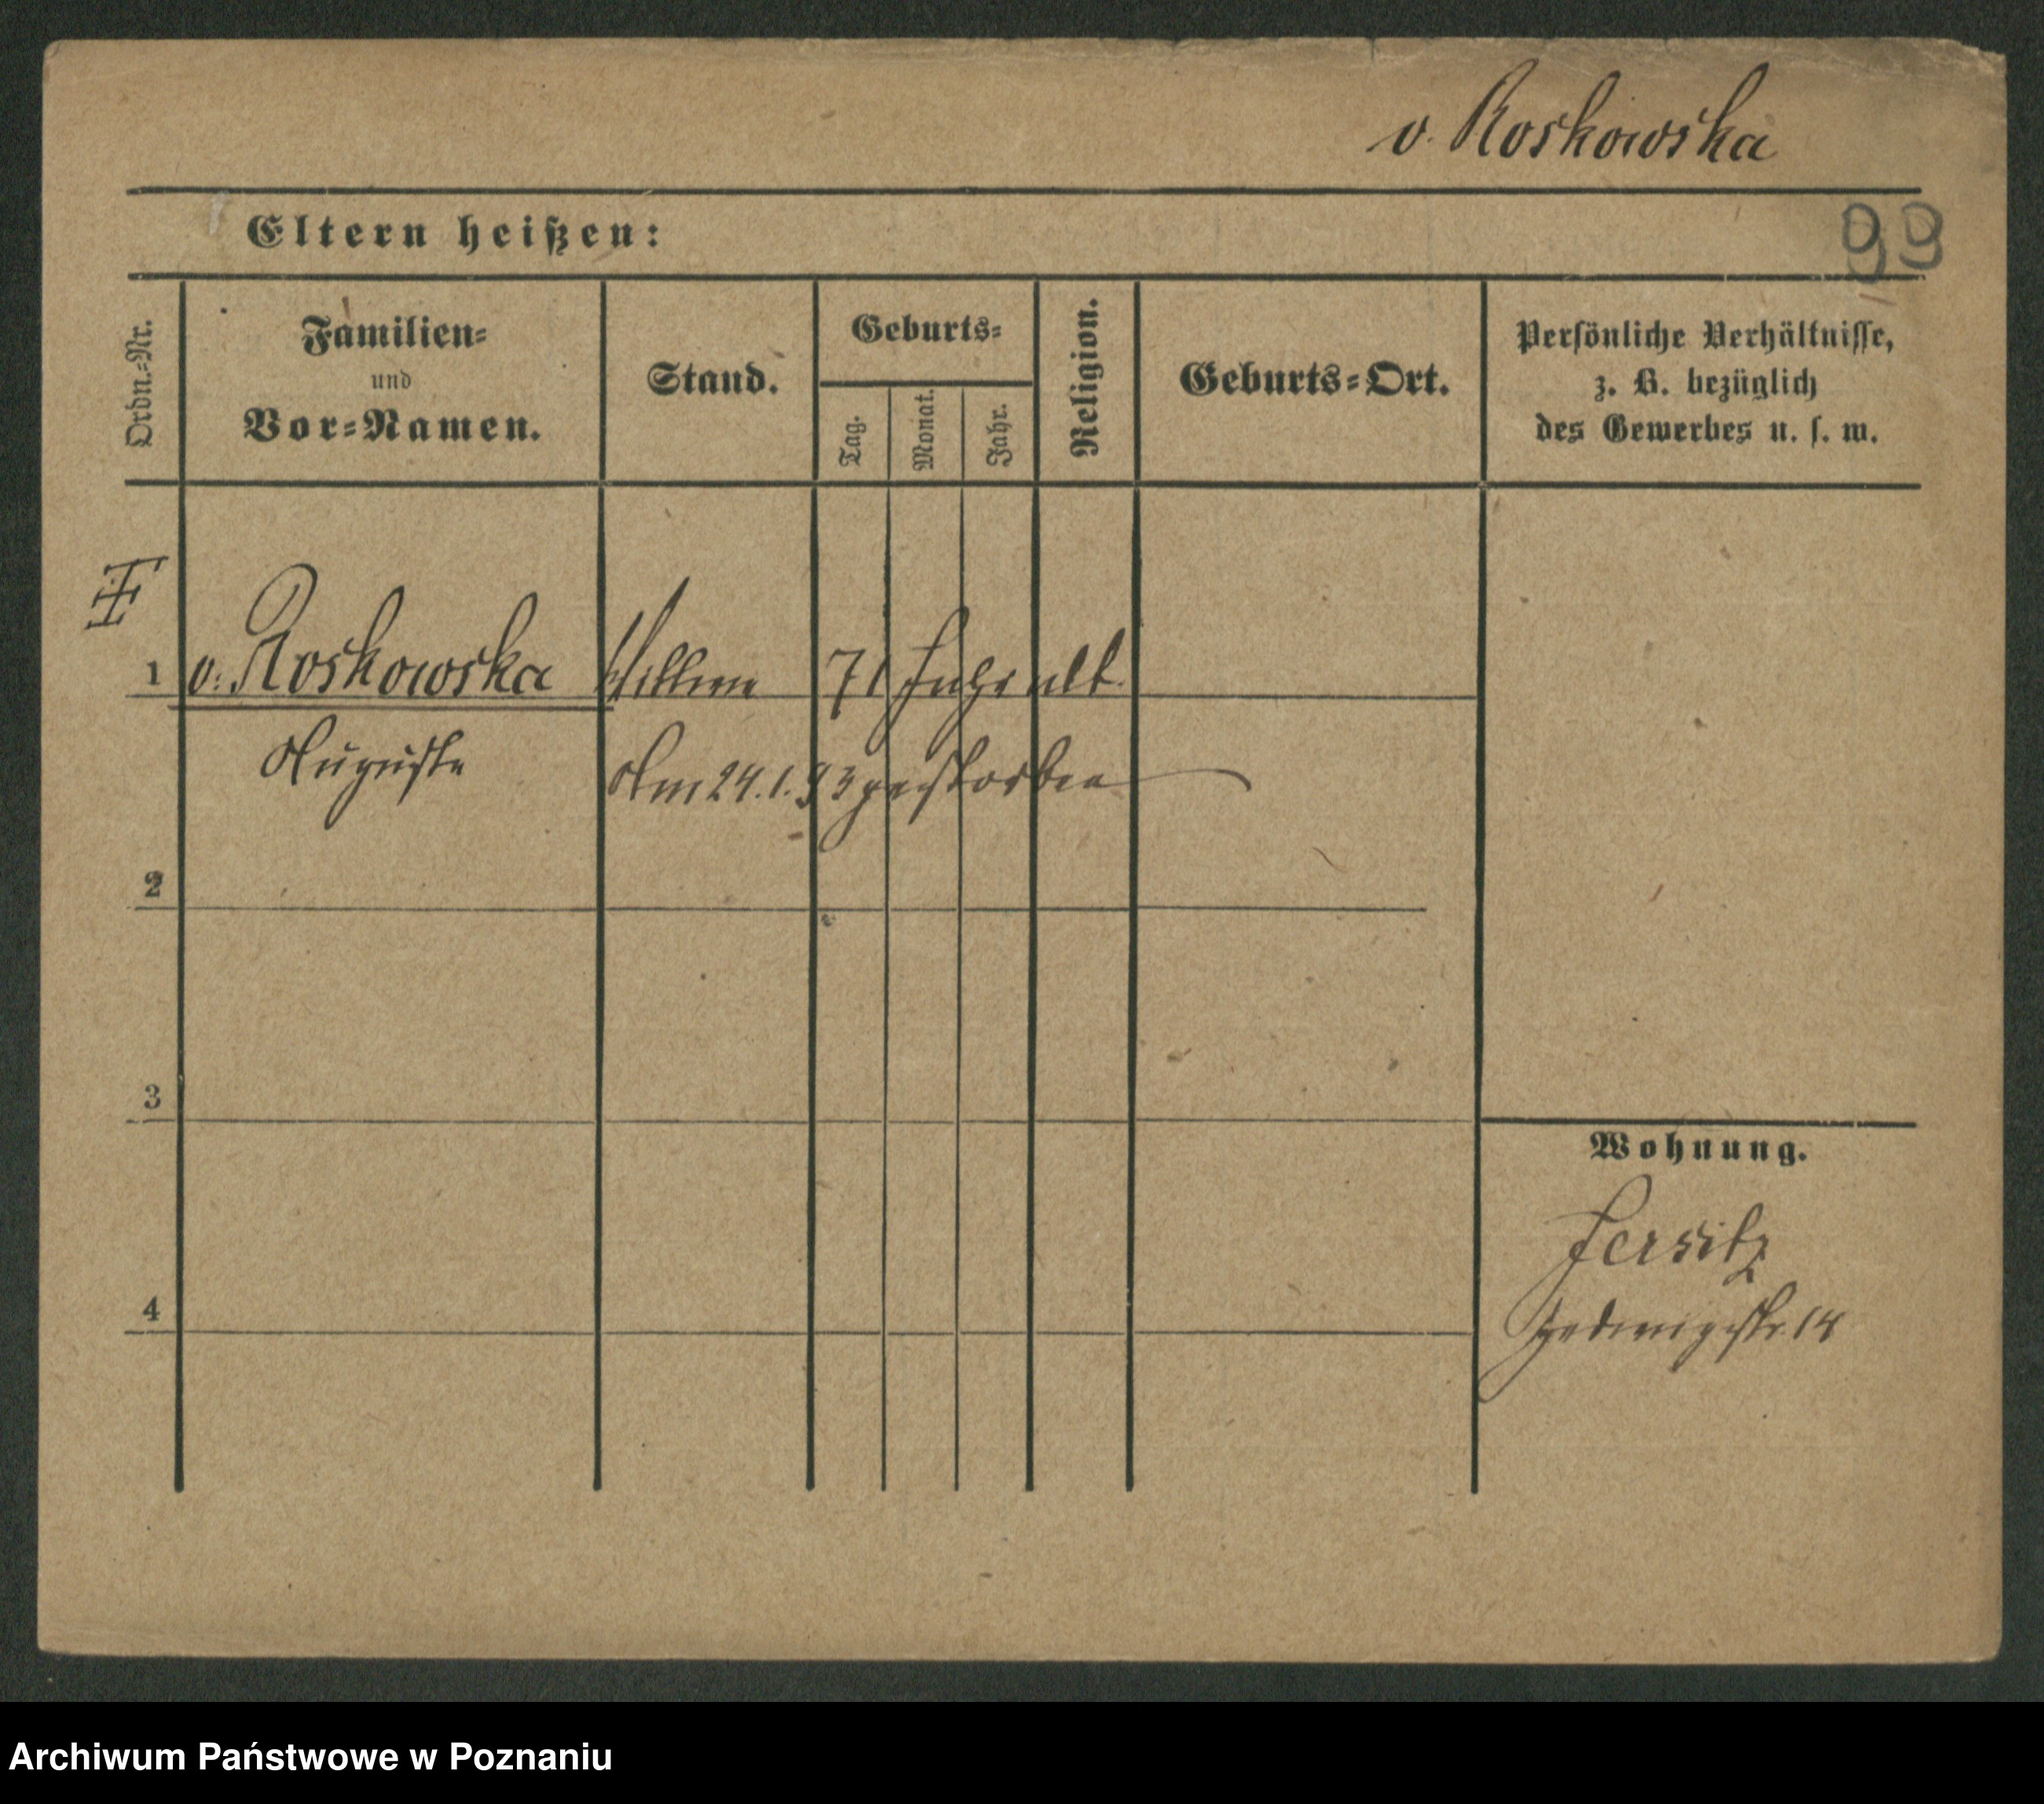 v. Roskowska
99
Eltern heißen:
Ordn.-Nr.
Familien-
und
Vor-Namen.
Stand.
Geburts-
Tag.
Monat.
Jahr.
Religion.
Geburts-Ort.
Persönliche Verhältnisse,
z. B. bezüglich
des Gewerbes u. s. w.
1 v. Roskowska Wittwe 71 Jahr alt.
Auguste Am 24.1.93 gestorben
2
3
Wohnung.
Jersitz
4
Hedwigstr. 14
Archiwum Państwowe w Poznaniu